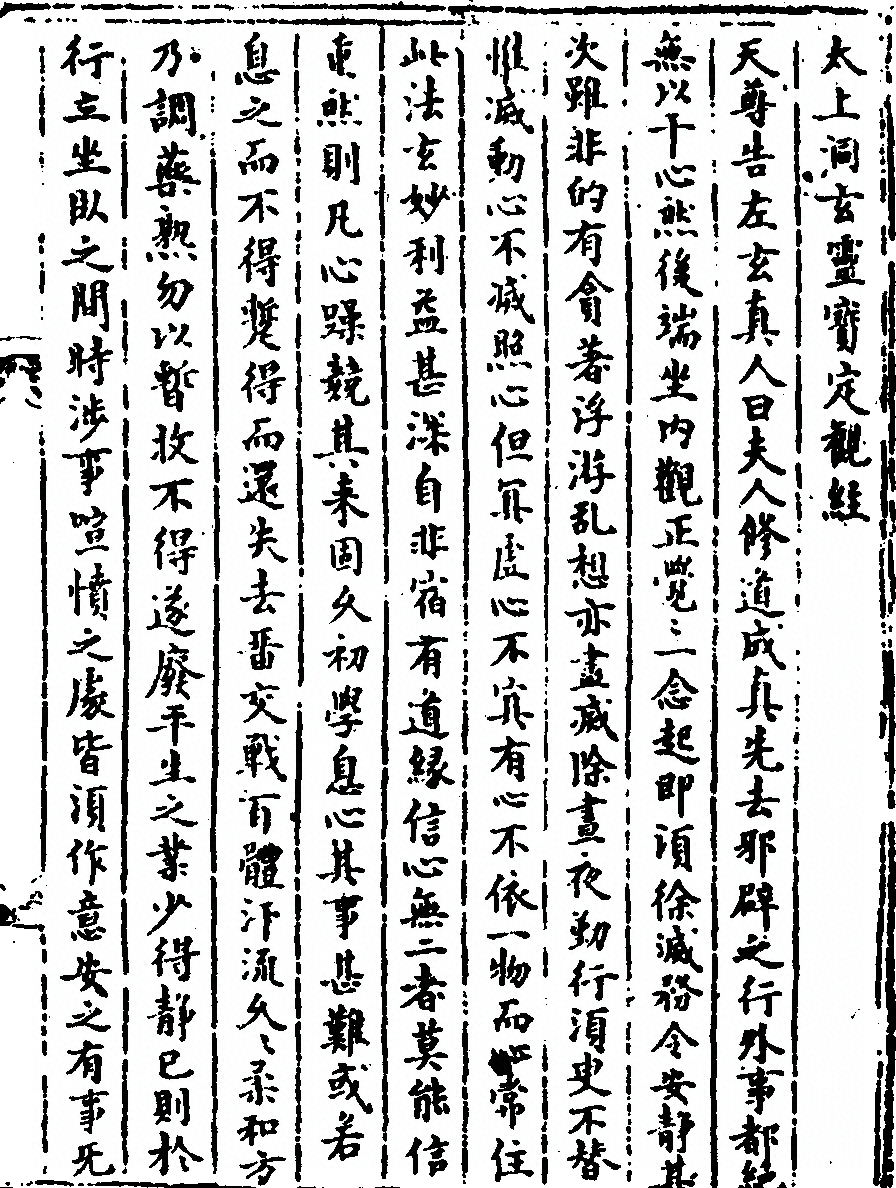 太上洞玄靈寳定觀經
天尊告左玄真人曰夫人修道成真先去邪辟之行外事都絶
無以干心然後端坐内觀正覺〻一念起即須徐滅務令安静其
次雖非的有貪著浮游乱想亦盡滅除晝夜勤行須臾不替
惟滅動心不滅照心但冥虚心不冥有心不依一物而心常住
此法玄妙利益甚深自非宿有道縁信心無二者莫能信
重然則凡心躁競其来固久初學息心其事甚難或若
息之而不得蹔得而還失去畱交戰百體汗流久〻柔和方
乃調藥熟勿以暫收不得遂廢平生之業少得静已則於
行立坐臥之間時涉事喧憒之處皆須作意安之有事无